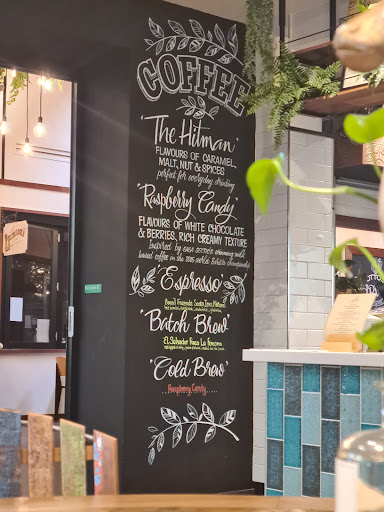 COFFEE
"The Hitman"
FLAVOURS OF CARAMEL,
MALT, NUT & SPICES
perfect for everyday drinking
"Raspberry Candy"
FLAVOURS OF WHITE CHOCOLATE
& BERRIES, RICH CREAMY TEXTURE
Inspired by winning milk
based coffee in the 2015 world barista championship
"Espresso"
Brazil Fazenda Santa
"Batch Brew"
El Salvador Finca La
"Cold Brew"
.....Raspberry Candy.....